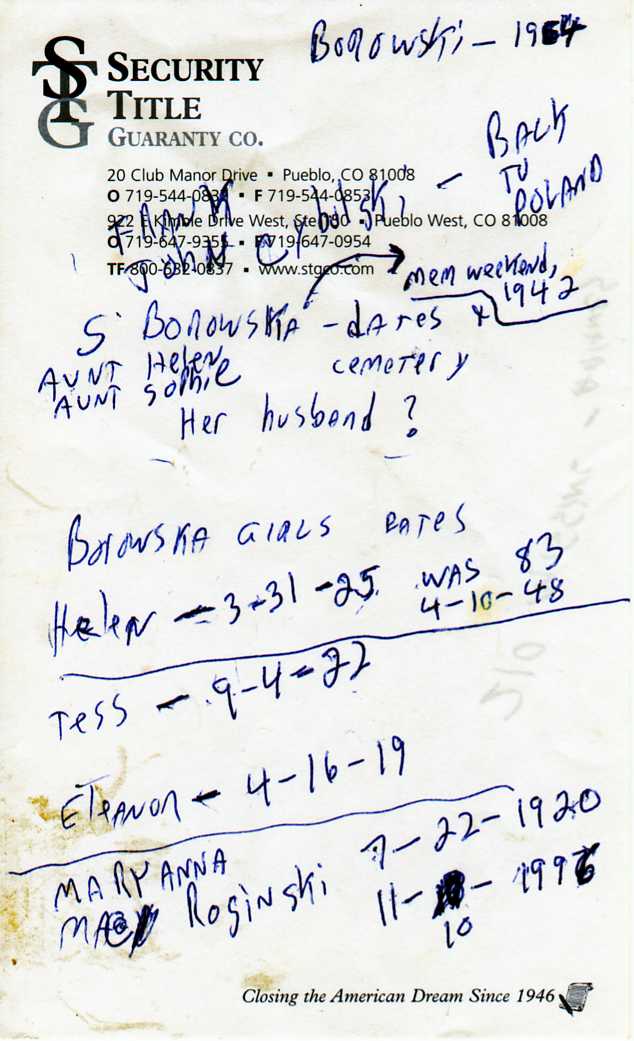 Borowski - 1964
STG
SECURITY
TITLE
GUARANTY CO.
BACK
TO
POLAND
20 Club Manor Drive ▪ Pueblo, CO 81008
O 719-544-083 ▪ F 719-544-0853
FRANK
922 E Kimble Drive West, Ste ▪ Pueblo West, CO 81008
O 719-647-9355 ▪ F 719-647-0954
JOHN Cybulski -
TF 800-632-0837 ▪ www.stgco.com
mem weekend,
1942
S BOROWSKA - dATES x
AUNT Helen
cemetery
AUNT Sophie
Her husband ?
Borowska GIRLS DATES
Helen - 3-31-25 WAS 83
4-10-48
Tess - 9-4-22
Eleanor - 4-16-19
MARYANNA
7-22-1920
Roginski
11-10-1996
Closing the American Dream Since 1946